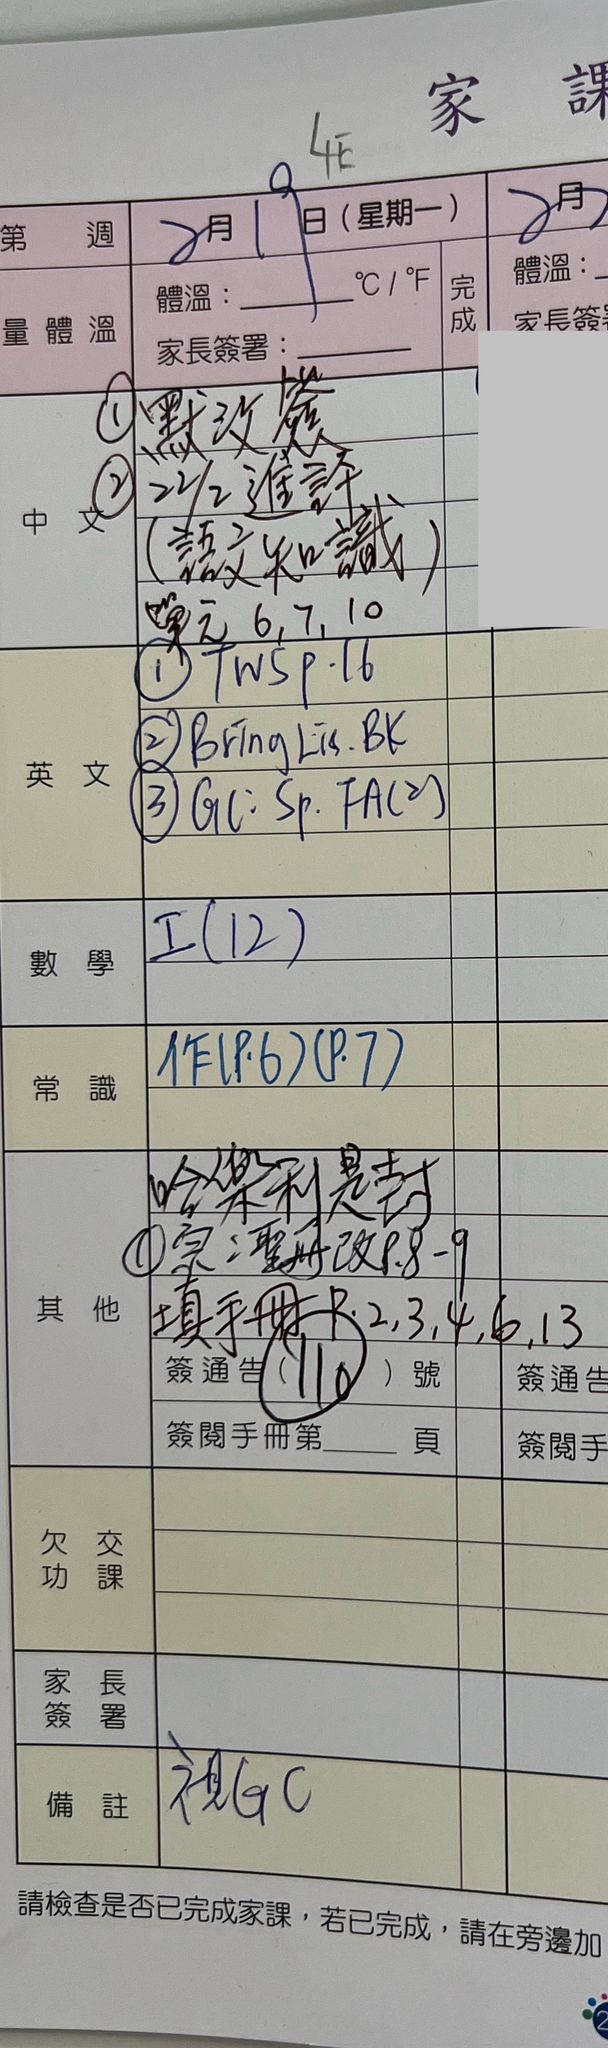 家 課
4E
第 週
2月19日(星期一)
2月
量體溫
體溫:______°C/°F
家長簽署:______
完成
體溫:
家長簽署
中文
①默改簽
②22/2進評
(語文知識)
單元 6,7,10
英文
①TWS p.16
②Bring Lis. BK
③GC: Sp. FA(2)
數學
工(12)
常識
作(P.6)(P.7)
其他
哈樂利是封
①宗:聖冊改P.8-9
填手冊P.2,3,4,6,13
簽通告(110)號
簽通告
簽閱手冊第____頁
簽閱手
欠交功課
家長簽署
備註
視GC
請檢查是否已完成家課,若已完成,請在旁邊加
2